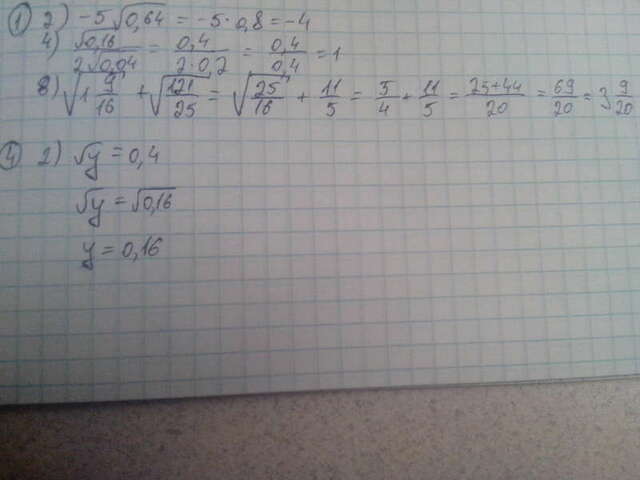 ① 2) -5√0,64 = -5·0,8 = -4
4) √0,16/2√0,04 = 0,4/2·0,2 = 0,4/0,4 = 1
8) √1 9/16 + √121/25 = √25/16 + 11/5 = 5/4 + 11/5 = 25+44/20 = 69/20 = 3 9/20
④ 2) √y = 0,4
√y = √0,16
y = 0,16